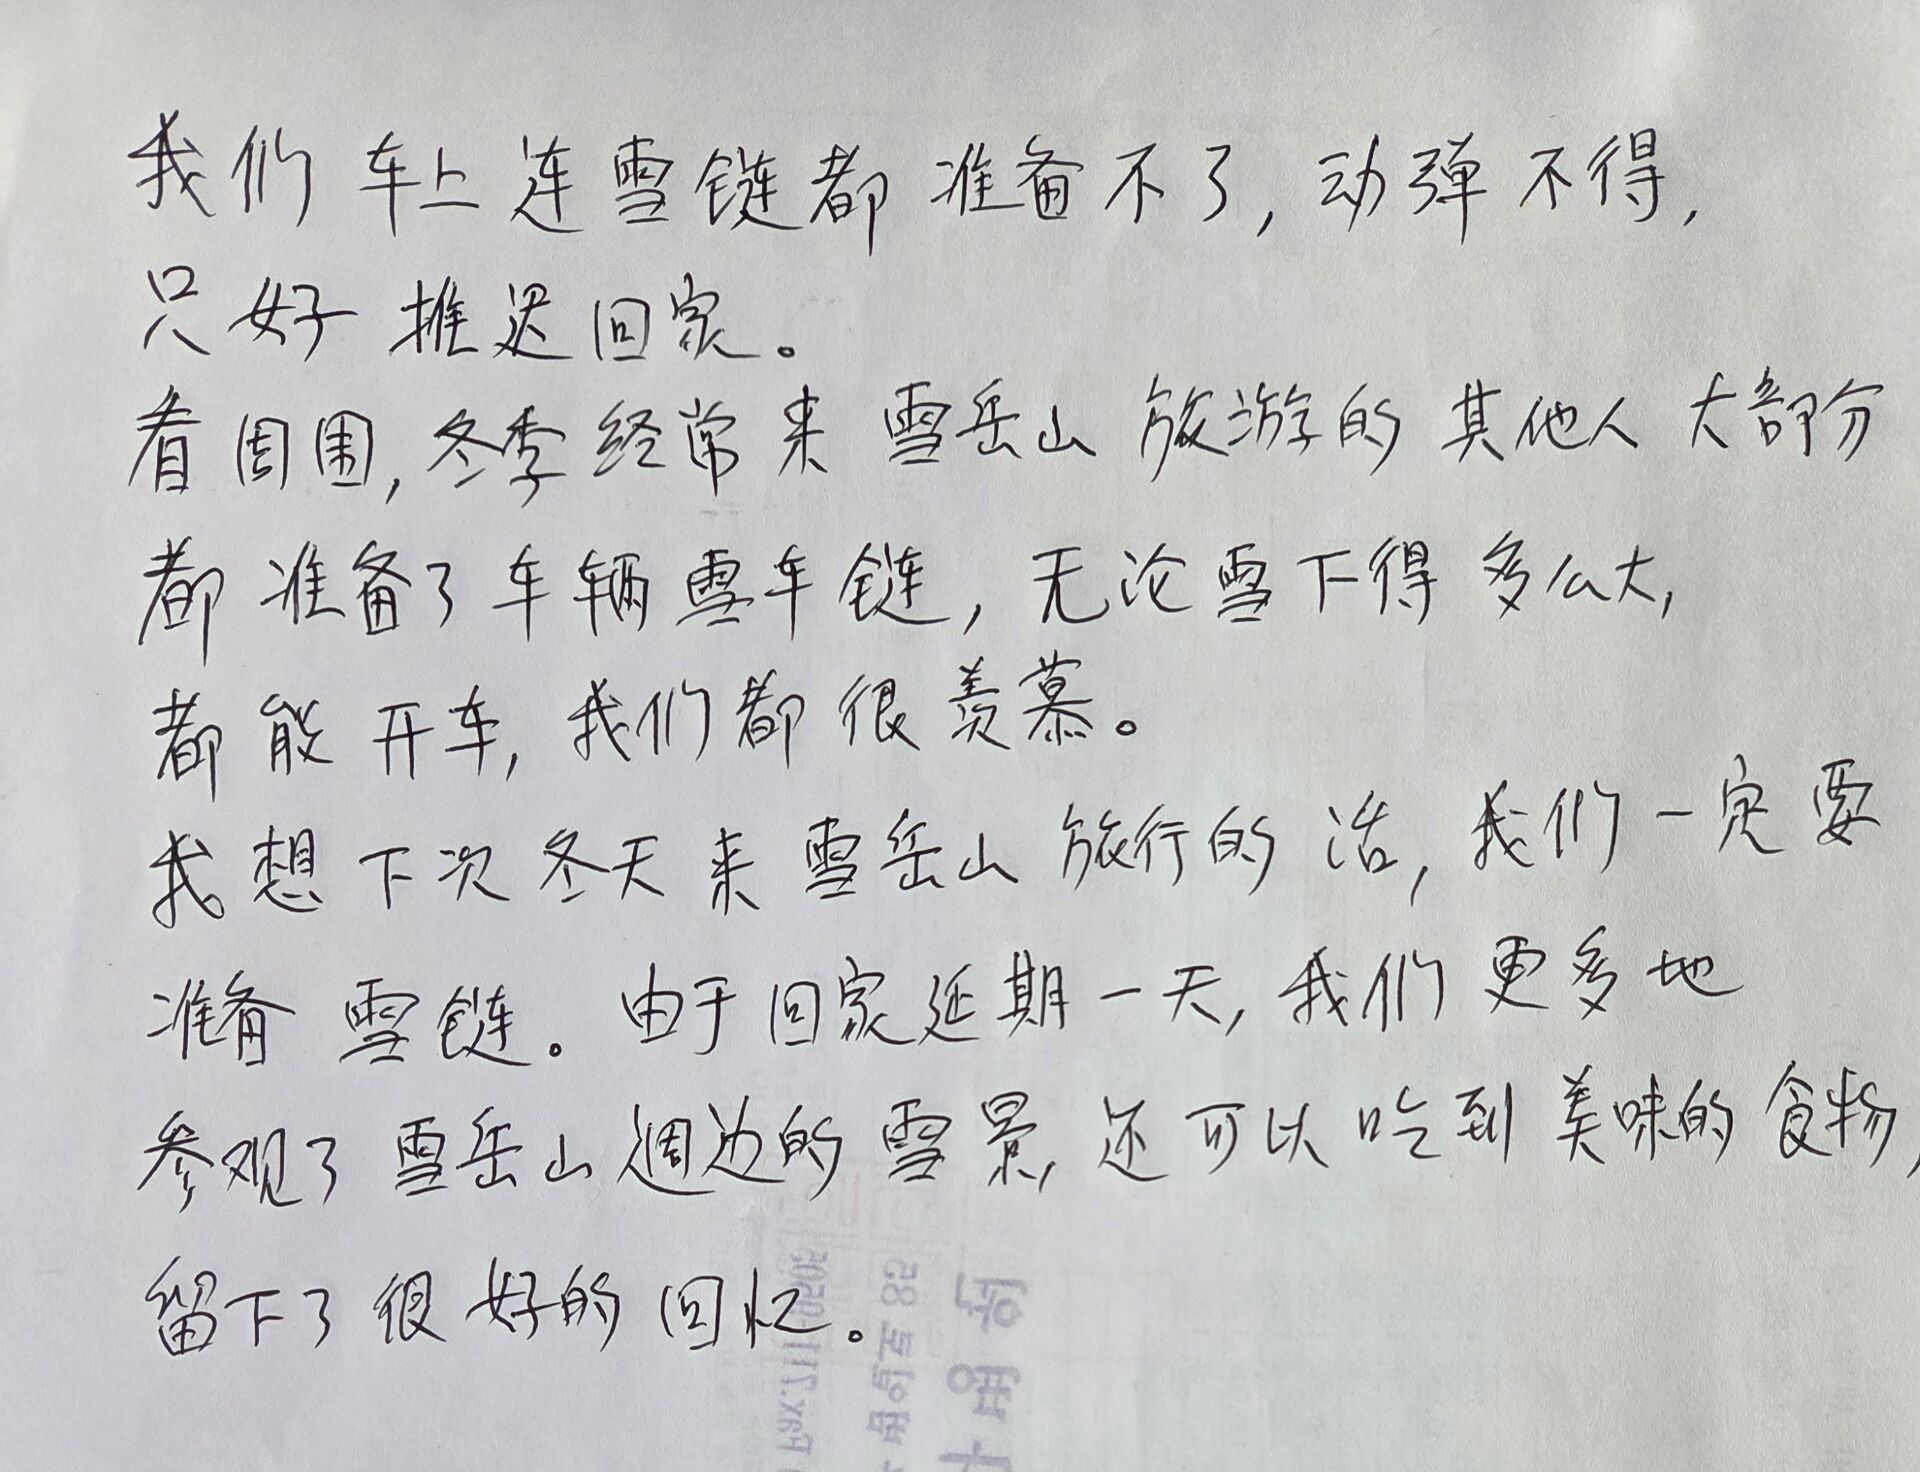 我们车上连雪链都准备不了,动弹不得,
只好推迟回家。
看周围,冬季经常来雪岳山旅游的其他人大部分
都准备了车辆雪车链,无论雪下得多么大,
都能开车,我们都很羡慕。
我想下次冬天来雪岳山旅行的话,我们一定要
准备雪链。由于回家延期一天,我们更多地
参观了雪岳山週边的雪景,还可以吃到美味的食物,
留下了很好的回忆。